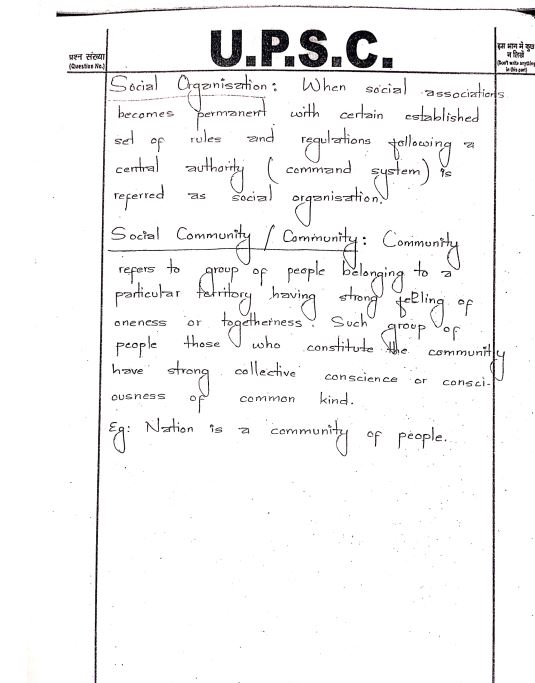 U.P.S.C.
प्रश्न संख्या
(Question No.)
इस भाग में कुछ
न लिखें
(Don't write anything
in this part)
Social Organisation: When social associations
becomes permanent with certain established
set of rules and regulations following a
central authority (command system) is
referred as social organisation.
Social Community / Community: Community
refers to group of people belonging to a
particular territory having strong feeling of
oneness or togetherness. Such group of
people those who constitute the community
have strong collective conscience or consci-
ousness of common kind.
Eg: Nation is a community of people.